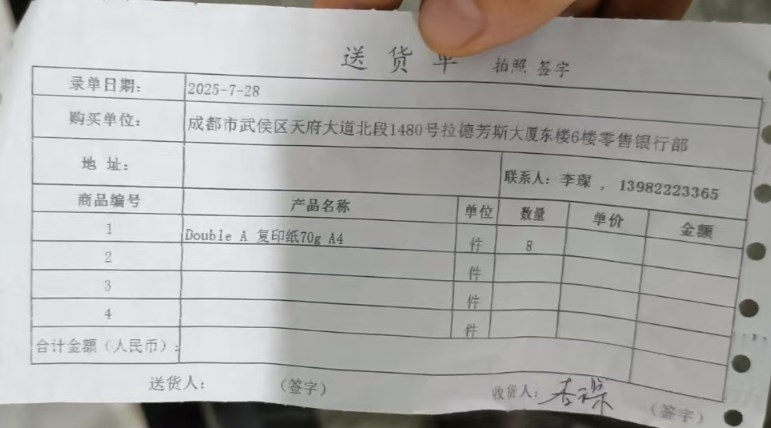 送货单 拍照 签字
录单日期： 2025-7-28
购买单位： 成都市武侯区天府大道北段1480号拉德芳斯大厦东楼6楼零售银行部
地 址： 联系人：李琛 ，13982223365
商品编号 产品名称 单位 数量 单价 金额
1 Double A 复印纸70g A4 件 8
2 件
3 件
4 件
合计金额（人民币）：
送货人： （签字） 收货人：李琛 （签字）